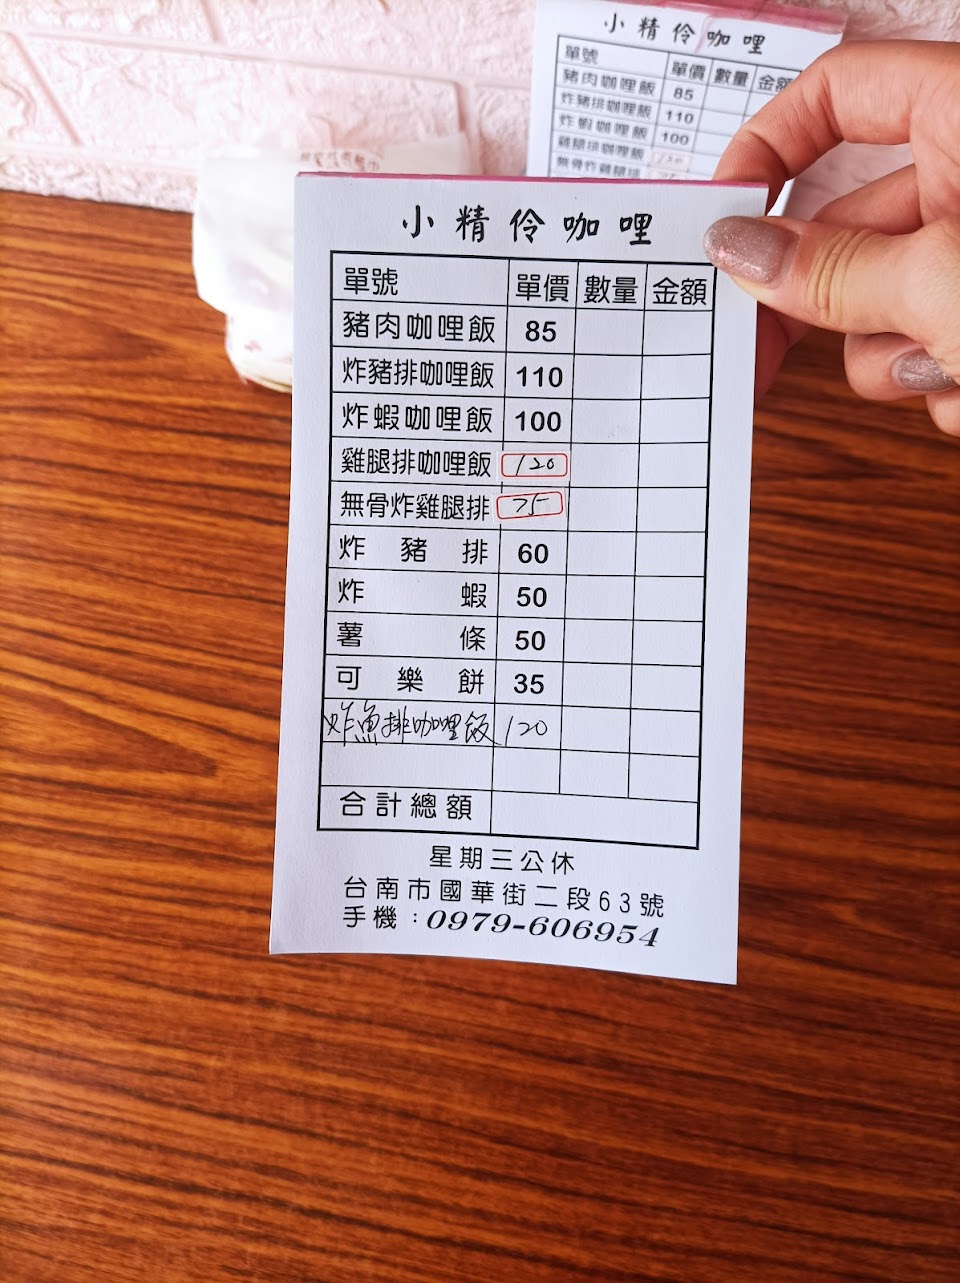 小精伶咖哩
單號 單價 數量 金額
豬肉咖哩飯 85
炸豬排咖哩飯 110
炸蝦咖哩飯 100
雞腿排咖哩飯 120
無骨炸雞腿排
小精伶咖哩
單號 單價 數量 金額
豬肉咖哩飯 85
炸豬排咖哩飯 110
炸蝦咖哩飯 100
雞腿排咖哩飯 120
無骨炸雞腿排 75
炸豬排 60
炸蝦 50
薯條 50
可樂餅 35
炸魚排咖哩飯 120
合計總額
星期三公休
台南市國華街二段63號
手機:0979-606954